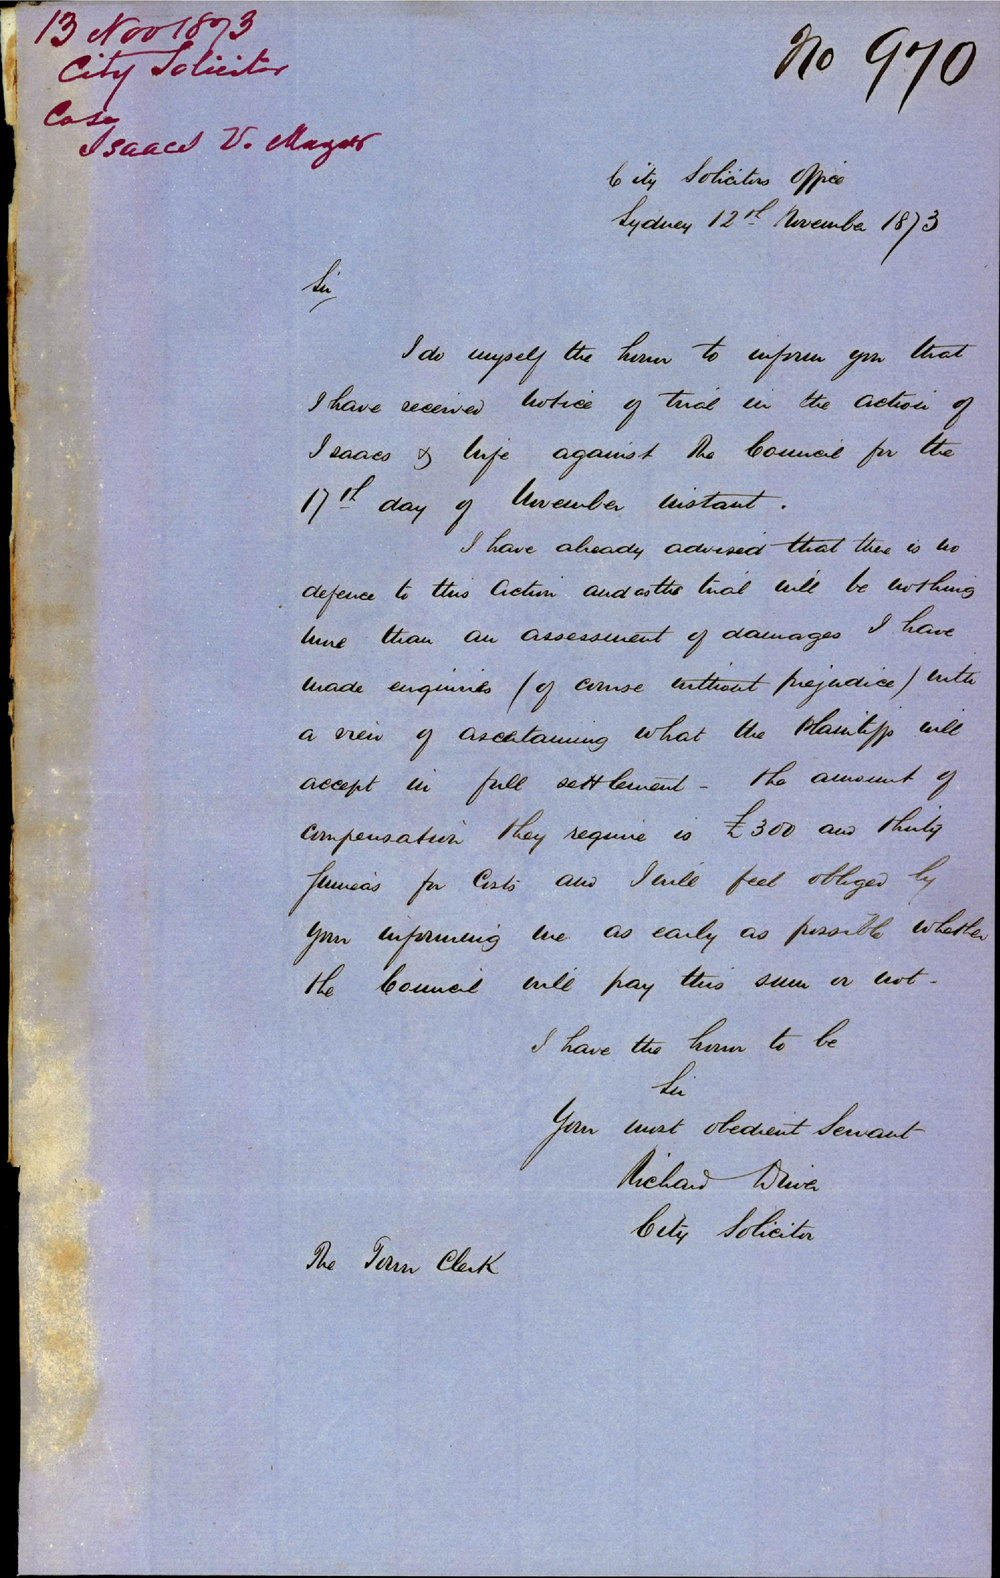 13 Nov 1873
City Solicitor
Case
Isaacs V. Mayor
No 970
City Solicitors Office
Sydney 12th November 1873
Sir
I do myself the honor to inform you that
I have received notice of trial in the action of
Isaacs & Wife against the Council for the
17th day of November instant.
I have already advised that there is no
defence to this action and as the trial will be nothing
more than an assessment of damages I have
made enquiries (of course without prejudice) with
a view of ascertaining what the Plaintiffs will
accept in full settlement - the amount of
compensation they require is £300 and thirty
guineas for costs and I will feel obliged by
your informing me as early as possible whether
the Council will pay this sum or not -
I have the honor to be
Sir
Your most obedient Servant
Richard Driver
City Solicitor
The Town Clerk